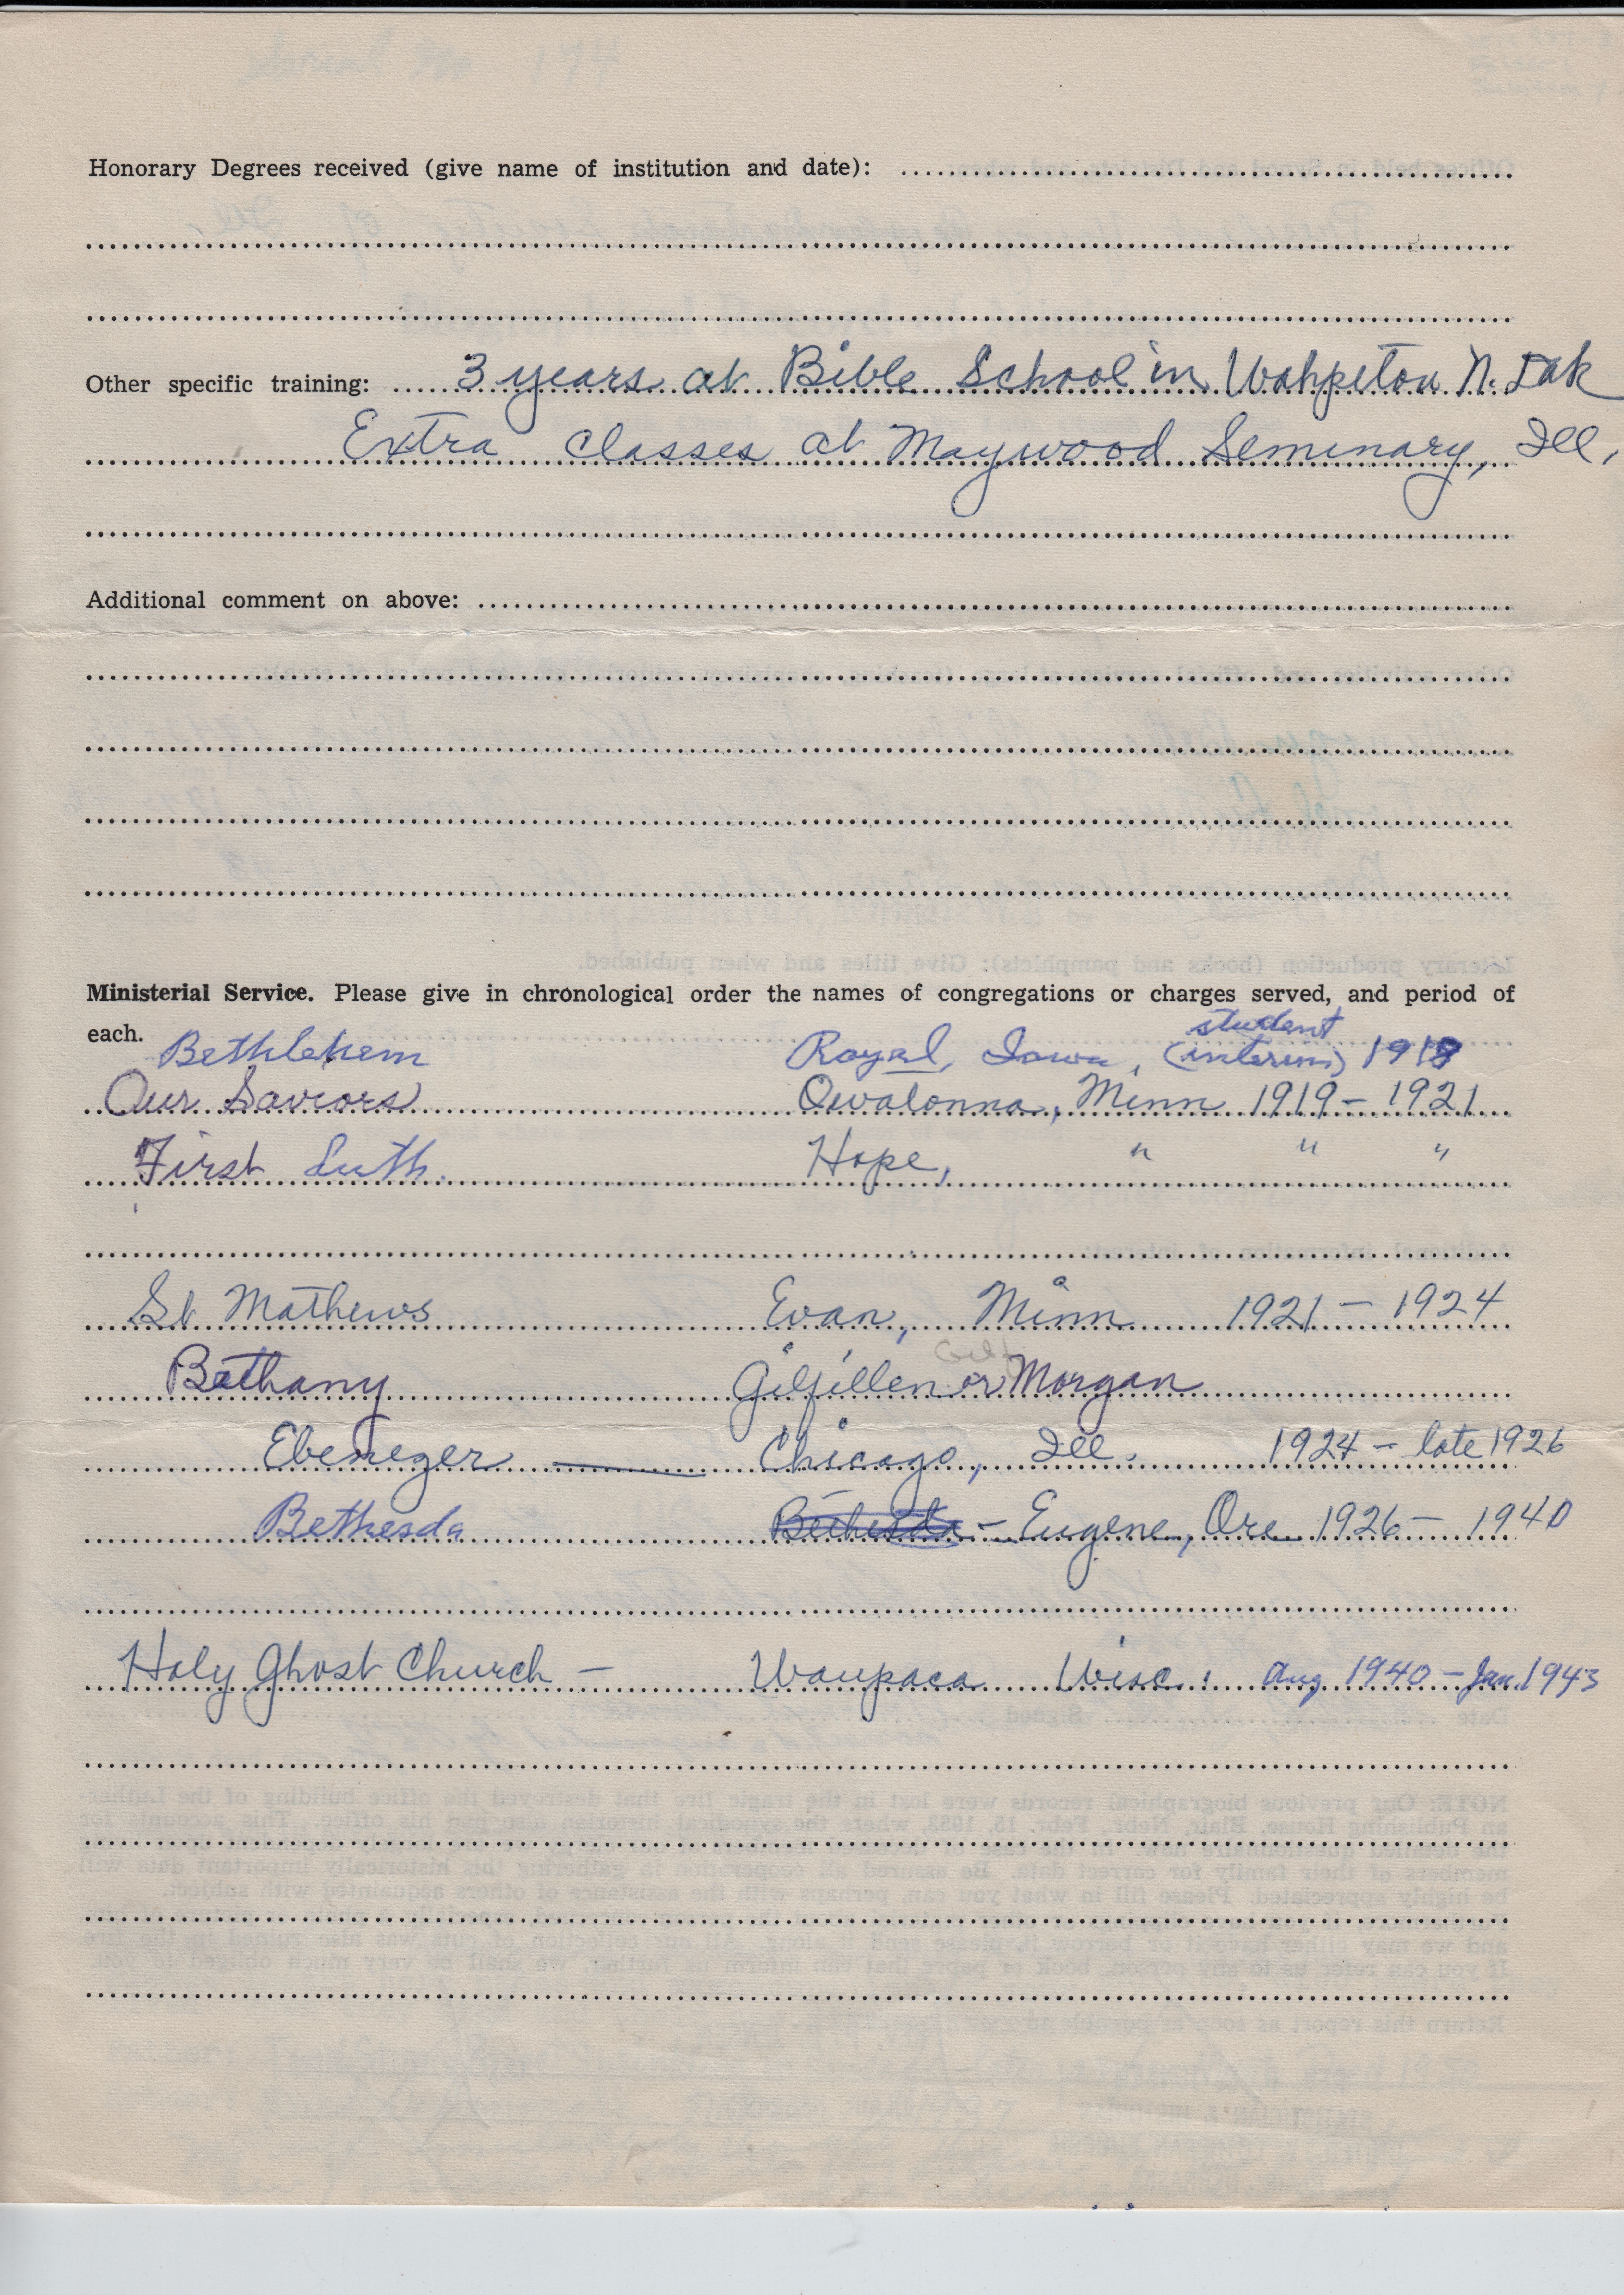 Honorary Degrees received (give name of institution and date):
Other specific training: 3 years at Bible School in Wahpeton N. Dak
Extra classes at Maywood Seminary, Ill.
Additional comment on above:
Ministerial Service. Please give in chronological order the names of congregations or charges served, and period of
each.
student
Bethlehem Royal, Iowa, (interim) 1918
Our Saviors Owatonna, Minn 1919 - 1921
First Luth. Hope, " " "
St Mathews Evan, Minn 1921 - 1924
Bethany Gilfillen or Morgan
Ebenezer — Chicago, Ill. 1924 - late 1926
Bethesda Bethesda - Eugene, Ore 1926 - 1940
Holy Ghost Church - Waupaca Wisc. Aug 1940 - Jan. 1943